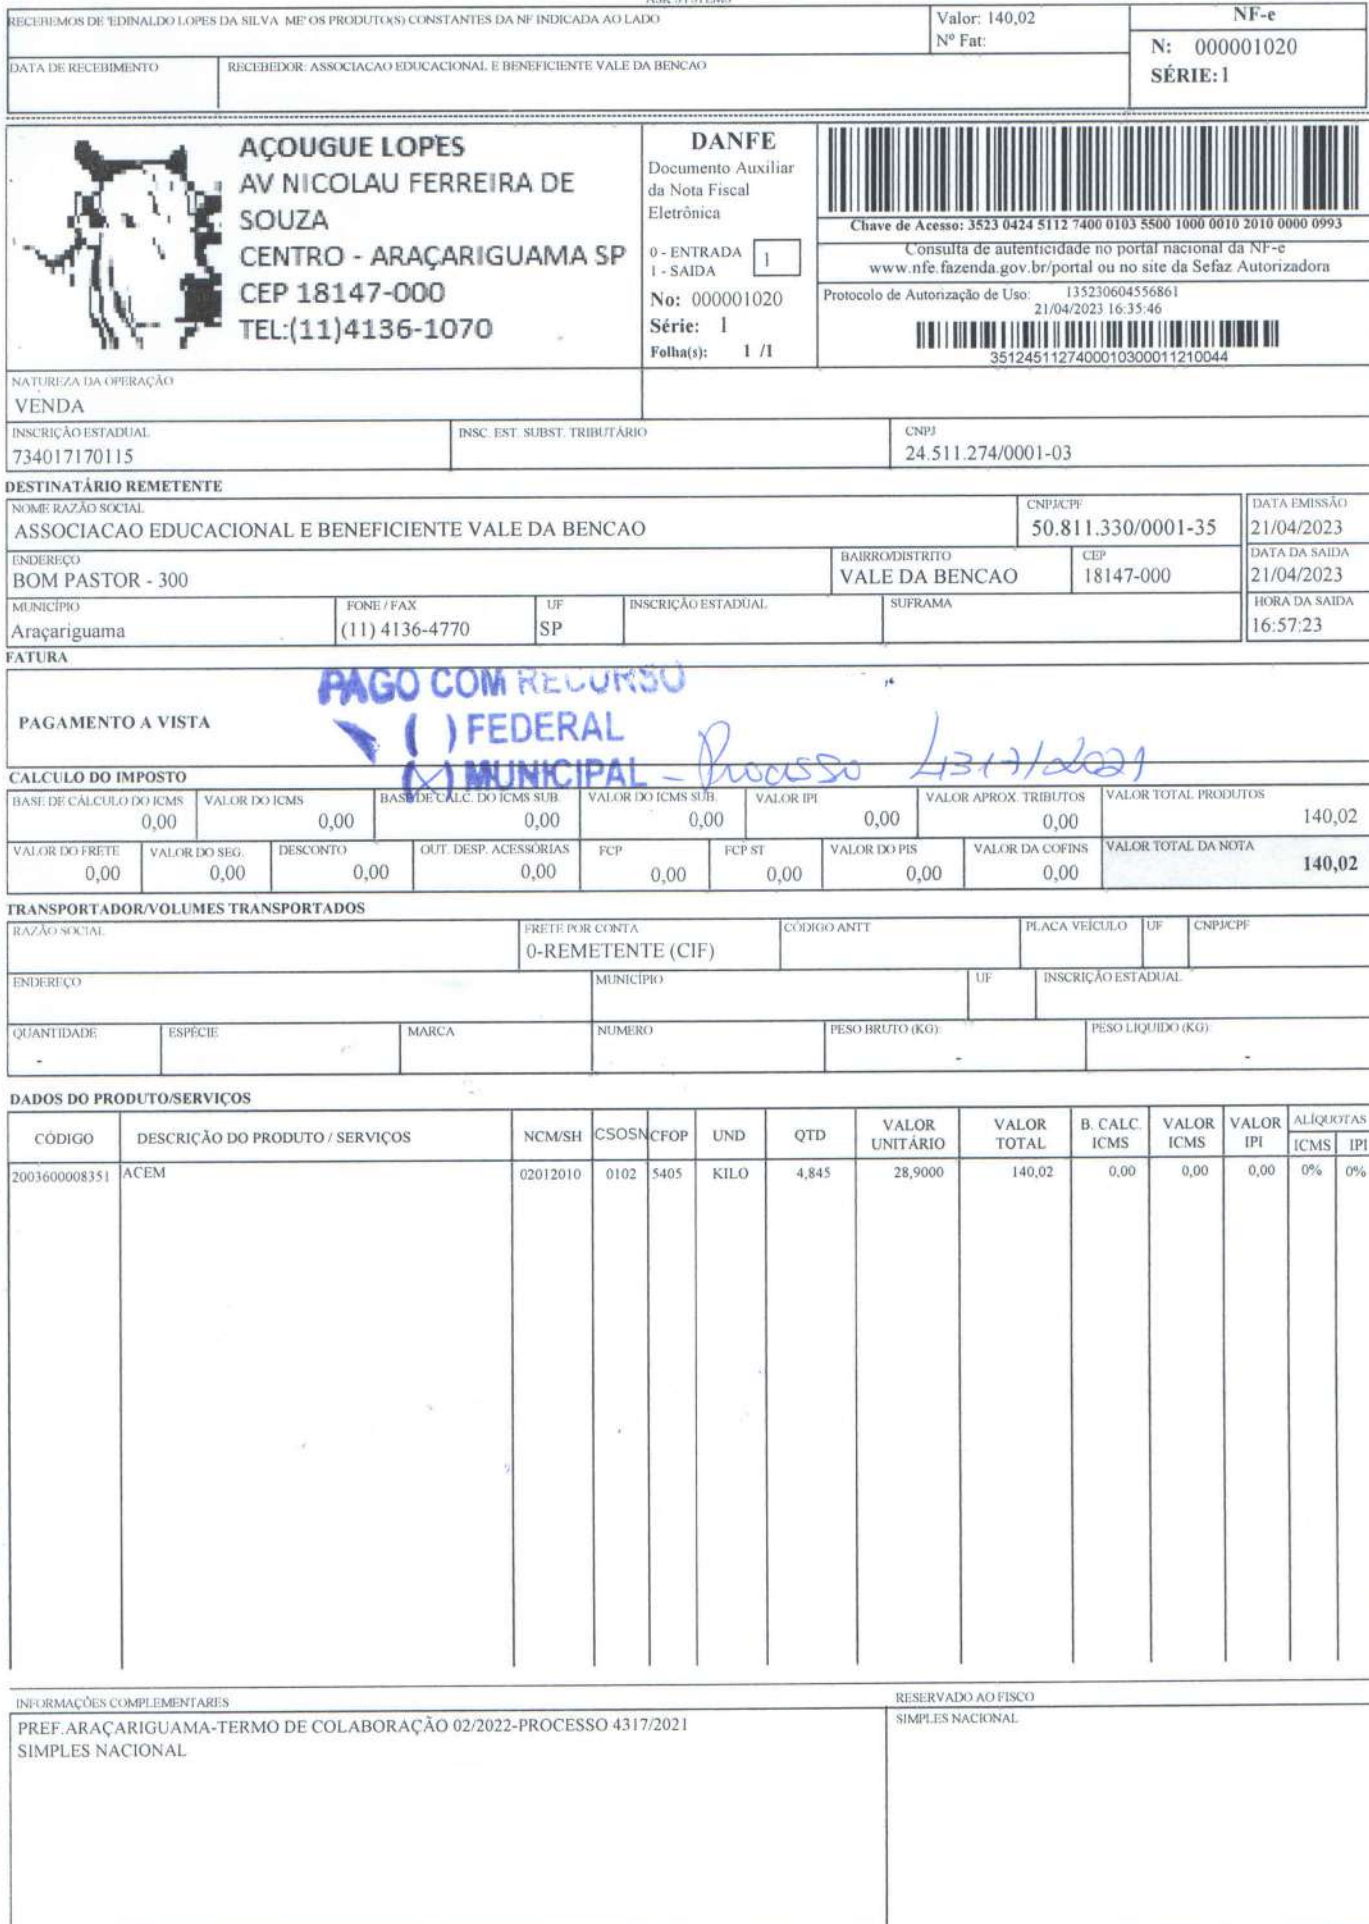 RECEBEMOS DE 'EDINALDO LOPES DA SILVA ME' OS PRODUTO(S) CONSTANTES DA NF INDICADA AO LADO
Valor: 140,02
Nº Fat:
NF-e
N: 000001020
SÉRIE: 1
DATA DE RECEBIMENTO
RECEBEDOR: ASSOCIACAO EDUCACIONAL E BENEFICIENTE VALE DA BENCAO
AÇOUGUE LOPES
AV NICOLAU FERREIRA DE
SOUZA
CENTRO - ARAÇARIGUAMA SP
CEP 18147-000
TEL:(11)4136-1070
DANFE
Documento Auxiliar
da Nota Fiscal
Eletrônica
0 - ENTRADA
1 - SAIDA
1
No: 000001020
Série: 1
Folha(s): 1 /1
Chave de Acesso: 3523 0424 5112 7400 0103 5500 1000 0010 2010 0000 0993
Consulta de autenticidade no portal nacional da NF-e
www.nfe.fazenda.gov.br/portal ou no site da Sefaz Autorizadora
Protocolo de Autorização de Uso: 135230604556861
21/04/2023 16:35:46
3512451127400010300011210044
NATUREZA DA OPERAÇÃO
VENDA
INSCRIÇÃO ESTADUAL
734017170115
INSC. EST. SUBST. TRIBUTÁRIO
CNPJ
24.511.274/0001-03
DESTINATÁRIO REMETENTE
NOME RAZÃO SOCIAL
ASSOCIACAO EDUCACIONAL E BENEFICIENTE VALE DA BENCAO
CNPJ/CPF
50.811.330/0001-35
DATA EMISSÃO
21/04/2023
ENDEREÇO
BOM PASTOR - 300
BAIRRO/DISTRITO
VALE DA BENCAO
CEP
18147-000
DATA DA SAIDA
21/04/2023
MUNICÍPIO
Araçariguama
FONE / FAX
(11) 4136-4770
UF
SP
INSCRIÇÃO ESTADUAL
SUFRAMA
HORA DA SAIDA
16:57:23
FATURA
PAGAMENTO A VISTA
PAGO COM RECURSO
( ) FEDERAL
(X) MUNICIPAL - Processo 4317/2021
CALCULO DO IMPOSTO
BASE DE CÁLCULO DO ICMS
0,00
VALOR DO ICMS
0,00
BASE DE CALC. DO ICMS SUB.
0,00
VALOR DO ICMS SUB.
0,00
VALOR IPI
0,00
VALOR APROX. TRIBUTOS
0,00
VALOR TOTAL PRODUTOS
140,02
VALOR DO FRETE
0,00
VALOR DO SEG.
0,00
DESCONTO
0,00
OUT. DESP. ACESSÓRIAS
0,00
FCP
0,00
FCP ST
0,00
VALOR DO PIS
0,00
VALOR DA COFINS
0,00
VALOR TOTAL DA NOTA
140,02
TRANSPORTADOR/VOLUMES TRANSPORTADOS
RAZÃO SOCIAL
FRETE POR CONTA
0-REMETENTE (CIF)
CÓDIGO ANTT
PLACA VEÍCULO
UF
CNPJ/CPF
ENDEREÇO
MUNICÍPIO
UF
INSCRIÇÃO ESTADUAL
QUANTIDADE
-
ESPÉCIE
MARCA
NUMERO
PESO BRUTO (KG):
-
PESO LÍQUIDO (KG):
-
DADOS DO PRODUTO/SERVIÇOS
CÓDIGO DESCRIÇÃO DO PRODUTO / SERVIÇOS NCM/SH CSOSN CFOP UND QTD VALOR UNITÁRIO VALOR TOTAL B. CALC. ICMS VALOR ICMS VALOR IPI ALÍQUOTAS ICMS IPI
2003600008351 ACEM 02012010 0102 5405 KILO 4,845 28,9000 140,02 0,00 0,00 0,00 0% 0%
INFORMAÇÕES COMPLEMENTARES
PREF.ARAÇARIGUAMA-TERMO DE COLABORAÇÃO 02/2022-PROCESSO 4317/2021
SIMPLES NACIONAL
RESERVADO AO FISCO
SIMPLES NACIONAL